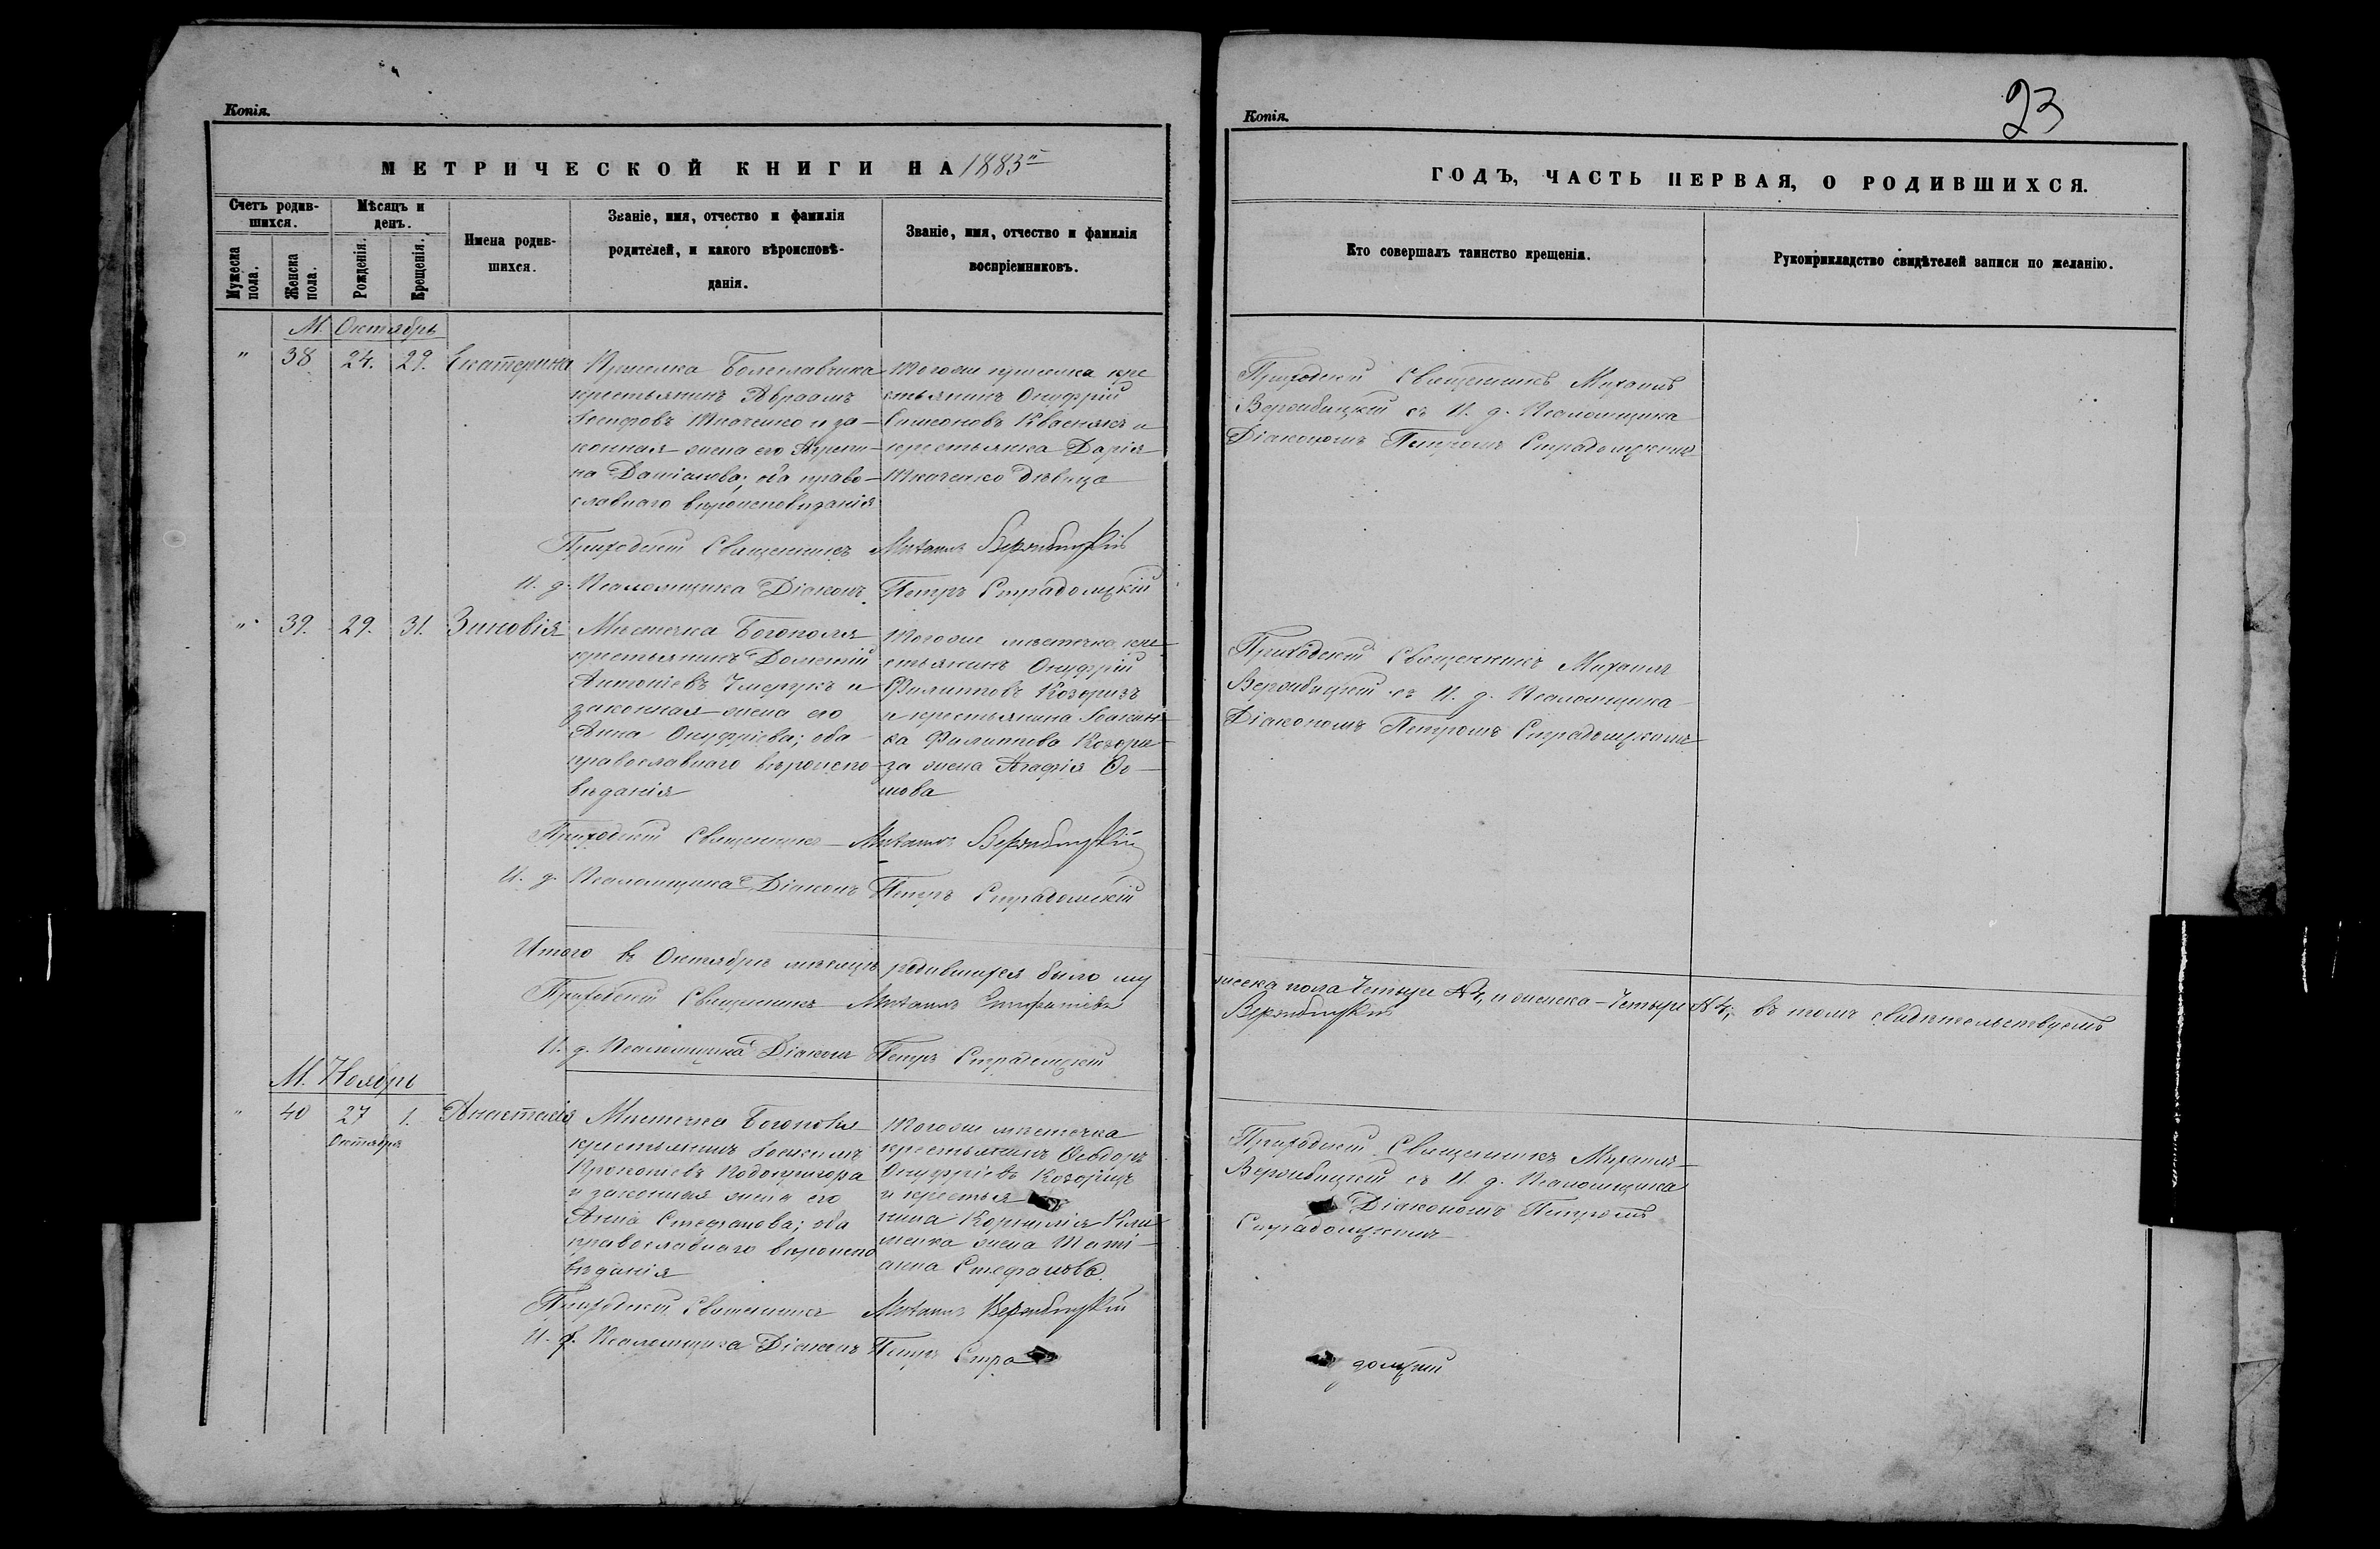 Копія.
МЕТРИЧЕСКОЙ КНИГИ НА 1883й
Счетъ родив-
шихся.
Мѣсяцъ и
день.
Мужеска
пола.
Женска
пола.
Рожденія.
Крещенія.
Имена родив-
шихся.
Званіе, имя, отчество и фамилія
родителей, и какого вѣроисповѣ-
данія.
Званіе, имя, отчество и фамилія
воспріемниковъ.
М. Октябрь
" 38 24. 29. Екатерина
Приселка Болеславчика
крестьянинъ Авраамъ
Іосифовъ Ткаченко и за-
конная жена его Агрипи-
на Даніилова; оба право-
славнаго вѣроисповѣданія
Тогоже приселка кре
стьянинъ Онуфрій
Симеоновъ Кваснякъ и
крестьянка Дарія
Ткаченко дѣвица
Приходскій Священникъ Михаилъ Вержбицкій
И. д. Псаломщика Діаконъ Петръ Страдомскій
" 39. 29. 31. Зиновія
Мѣстечка Богополя
крестьянинъ Дометій
Антоніевъ и
законная жена его
Анна Онуфріева; оба
православнаго вѣроиспо-
вѣданія
Тогоже мѣстечка кре-
стьянинъ Онуфрій
Филипповъ Козоризъ
и крестьянина Іоакин-
ка Филиппова Козори-
за жена Агафія Ѳо-
мова
Приходскій Священникъ Михаилъ Вержбицкій
И. д. Псаломщика Діаконъ Петръ Страдомскій
Итого въ Октябрѣ мѣсяцѣ родившихся было му
Приходскій Священникъ Михаилъ
И. д. Псаломщика Діаконъ Петръ Страдомскій
М. Ноябрь
" 40 27 1. Анастасія
Октября
Мѣстечка Богополя
крестьянинъ Іоакимъ
Прокопіевъ Подопригора
и законная жена его
Анна Стефанова; оба
православнаго вѣроиспо
вѣданія
Тогоже мѣстечка
крестьянинъ Ѳеодоръ
Онуфріевъ Козоризъ
и крестья
нина Корнилія Кли
менка жена Тати-
анна Стефанова.
Приходскій Священникъ Михаилъ Вержбицкій
И. д. Псаломщика Діаконъ Петръ Стра
Копія.
23
ГОДЪ, ЧАСТЬ ПЕРВАЯ, О РОДИВШИХСЯ.
Кто совершалъ таинство крещенія.
Рукоприкладство свидѣтелей записи по желанію.
Приходскій Священникъ Михаилъ
Вержбицкій съ И. д. Псаломщика
Діакономъ Петромъ Страдомскимъ
Приходскій Священникъ Михаилъ
Вержбицкій съ И. д. Псаломщика
Діакономъ Петромъ Страдомскимъ
жеска пола Четыре № 4, и женска – Четыре № 4; въ томъ свидѣтельствуемъ
Вержбицкій
Приходскій Священникъ Михаилъ
Вержбицкій съ И. д. Псаломщика
Діакономъ Петромъ
Страдомскимъ
домскій